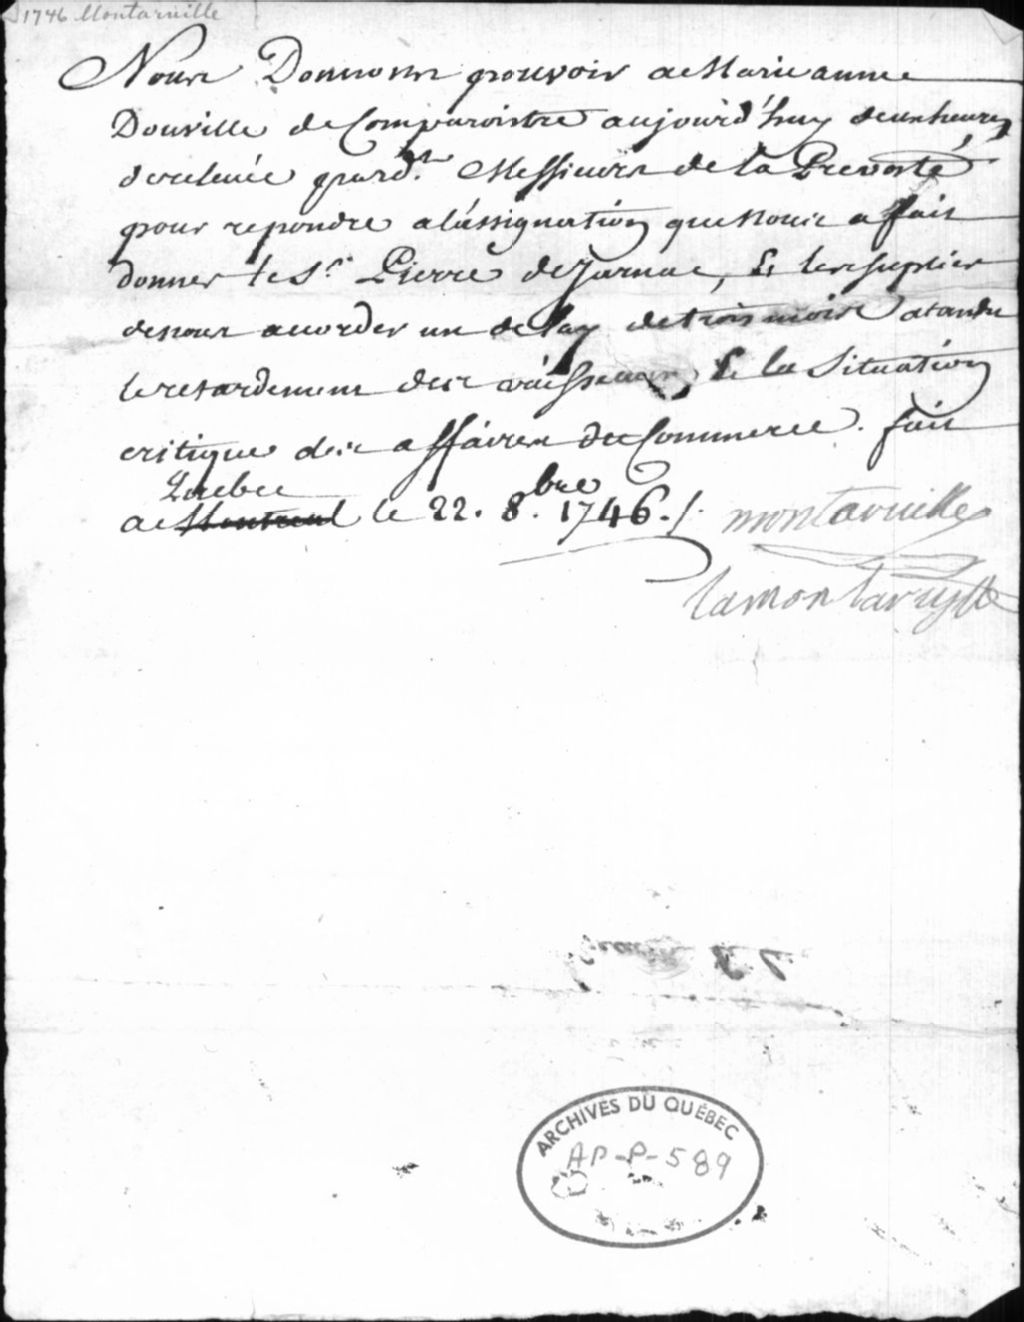 1746 Montarville
Nous Donnons pouvoir a Marie anne
Douville de Comparoistre aujourd'huy deux heures
de relevée pard.nt Messieurs de la Prevosté
pour repondre a l'assignation que nous a fait
donner le S.r Pierre de Jarnac, & les suplier
de nous accorder un delay de trois mois atandu
le retardement des vaisseaux & la Situation
critique des affaires du Commerce. fait
Quebec
a Montreal le 22. 8.bre 1746./.
montarville
lamontarville
ARCHIVES DU QUÉBEC
AP-P-589